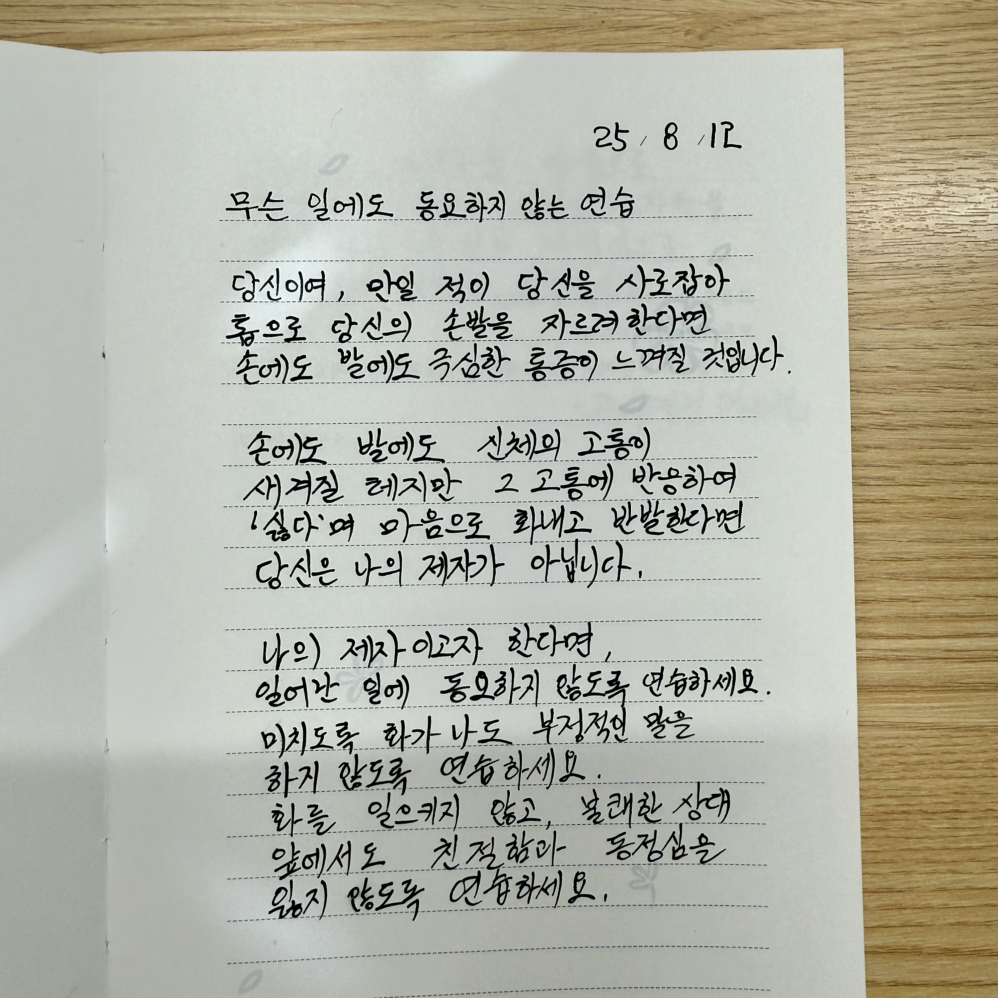 25. 8. 12
무슨 일에도 동요하지 않는 연습
당신이여, 만일 적이 당신을 사로잡아
톱으로 당신의 손발을 자르려 한다면
손에도 발에도 극심한 통증이 느껴질 것입니다.
손에도 발에도 신체의 고통이
새겨질 테지만 그 고통에 반응하여
'싫다'며 마음으로 화내고 반발한다면
당신은 나의 제자가 아닙니다.
나의 제자이고자 한다면,
일어난 일에 동요하지 않도록 연습하세요.
미치도록 화가 나도 부정적인 말을
하지 않도록 연습하세요.
화를 일으키지 않고, 불쾌한 상대
앞에서도 친절함과 동정심을
잃지 않도록 연습하세요.